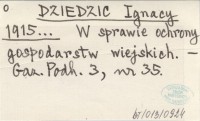 o DZIEDZIC Ignacy
1915... W sprawie ochrony
gospodarstw wiejskich. –
Gaz. Podh. 3, nr 35.